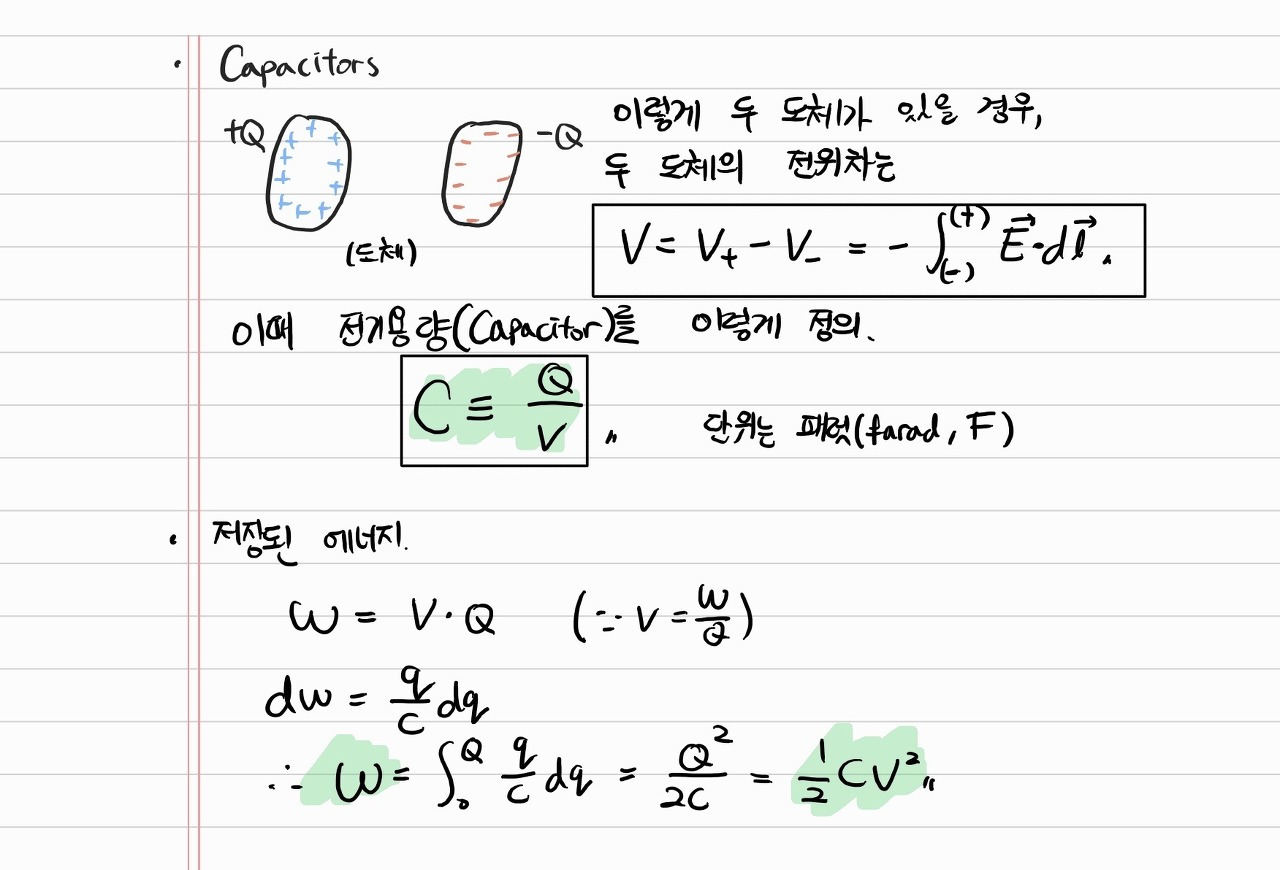 · Capacitors
+Q -Q 이렇게 두 도체가 있을 경우,
두 도체의 전위차는
(도체) V = V₊ - V₋ = -∫₍₋₎⁽⁺⁾ E⃗·dl⃗ 〃
이때 전기용량(Capacitor)를 이렇게 정의.
C ≡ Q/V 〃 단위는 패럿(farad, F)
· 저장된 에너지.
W = V·Q (∵ V = W/Q)
dw = q/c dq
∴ W = ∫₀^Q q/c dq = Q²/2C = 1/2 CV² 〃